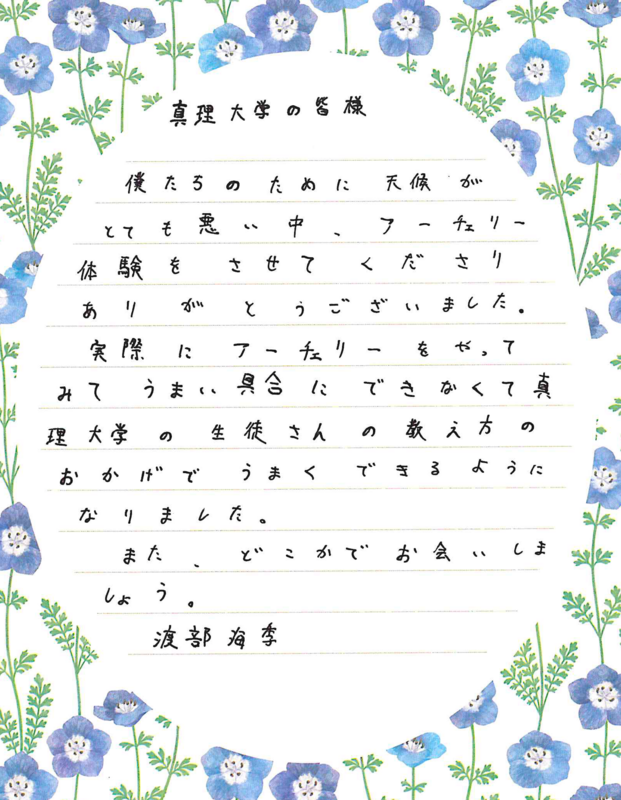 真理大学の皆様
僕たちのために天候が
とても悪い中、アーチェリー
体験をさせてくださり
ありがとうございました。
実際にアーチェリーをやって
みてうまい具合にできなくて真
理大学の生徒さんの教え方の
おかげでうまくできるように
なりました。
また、どこかでお会いしま
しょう。
渡部海季